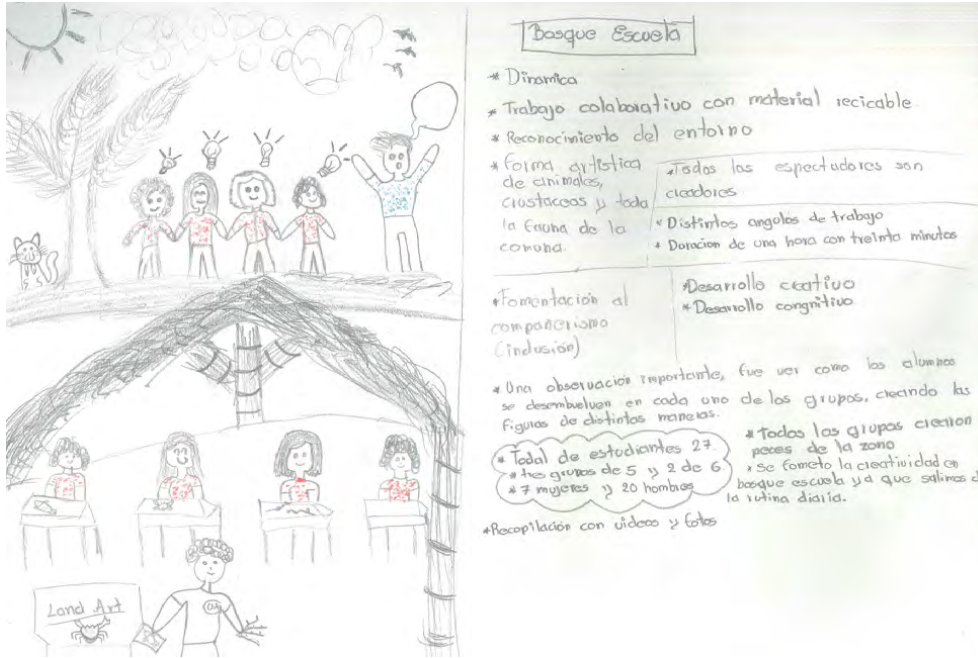 Bosque Escuela
* Dinamica
* Trabajo colaborativo con material recicable.
* Reconocimiento del entorno
* Forma artistica
de animales,
crustaceos y toda
la fauna de la
comuna.
* Todos los espectadores son
creadores
* Distintos angulos de trabajo
* Duracion de una hora con treinta minutos
* Fomentación al
compañerismo
(inclusión)
* Desarrollo creativo
* Desarrollo congnitivo
* Una observación importante, fue ver como los alumnos
se desembuelven en cada uno de los grupos, creando las
figuras de distintas maneras.
* Todal de estudiantes 27.
* tres grupos de 5 y 2 de 6.
* 7 mujeres y 20 hombres
* Todos los grupos crearon
peces de la zona
* se fometo la creatividad en
bosque escuela ya que salimos d
la rutina diaria.
* Recopilación con videos y fotos
Land Art